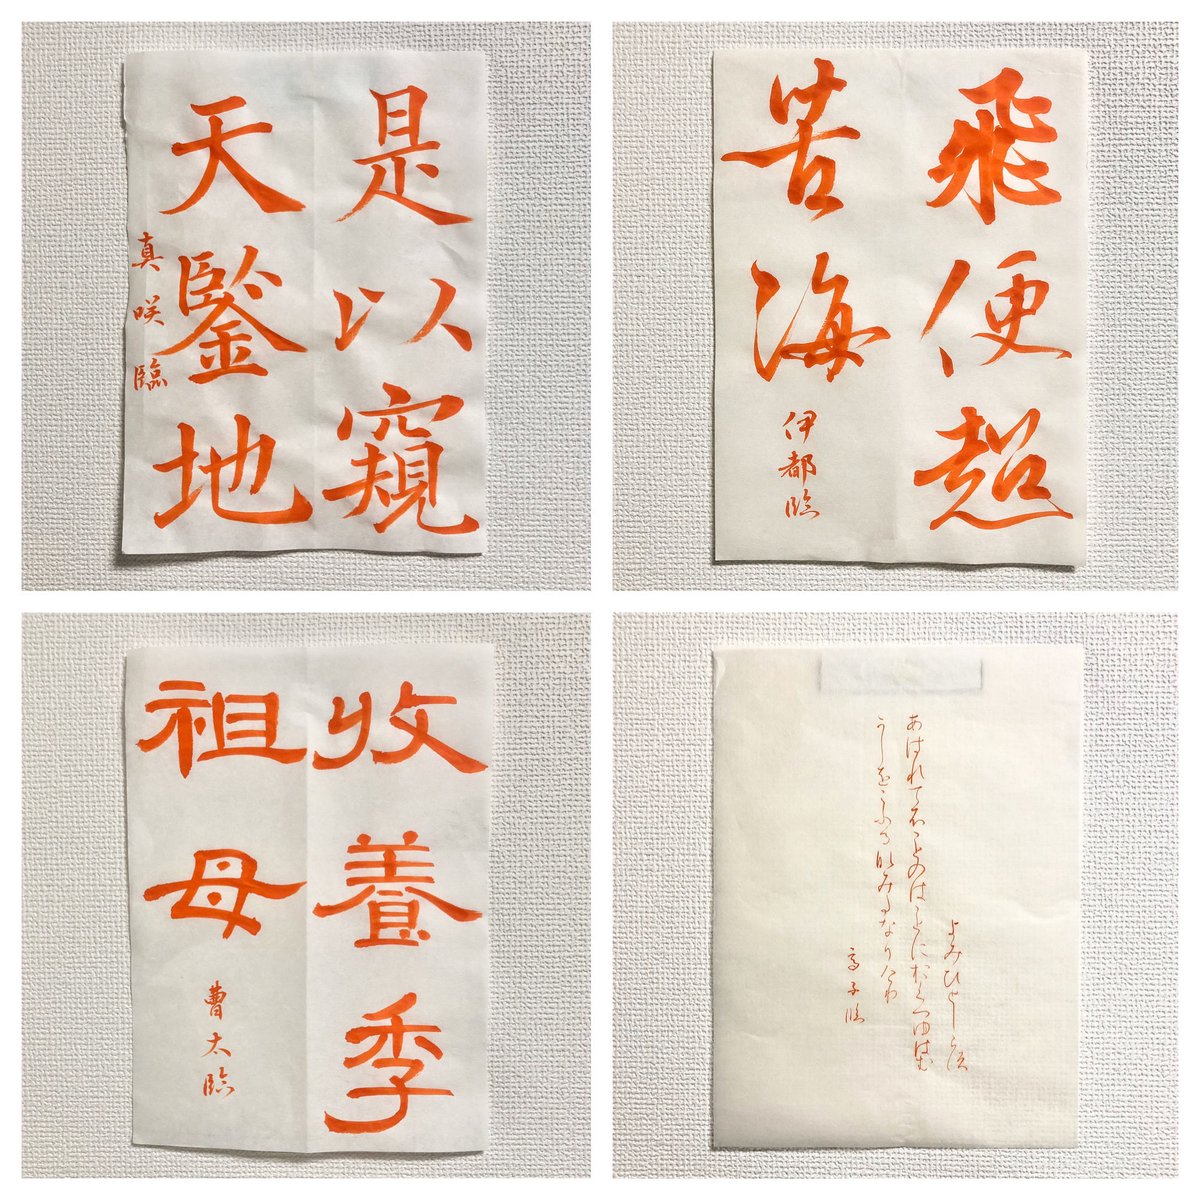 是以窺
天鑒地
真咲臨
飛便超
苦海
伊都臨
收養季
祖母
曹太臨
よみひとしらす
あはれてふことのはことにおくつゆはむ
かしをこふるなみたなりけり